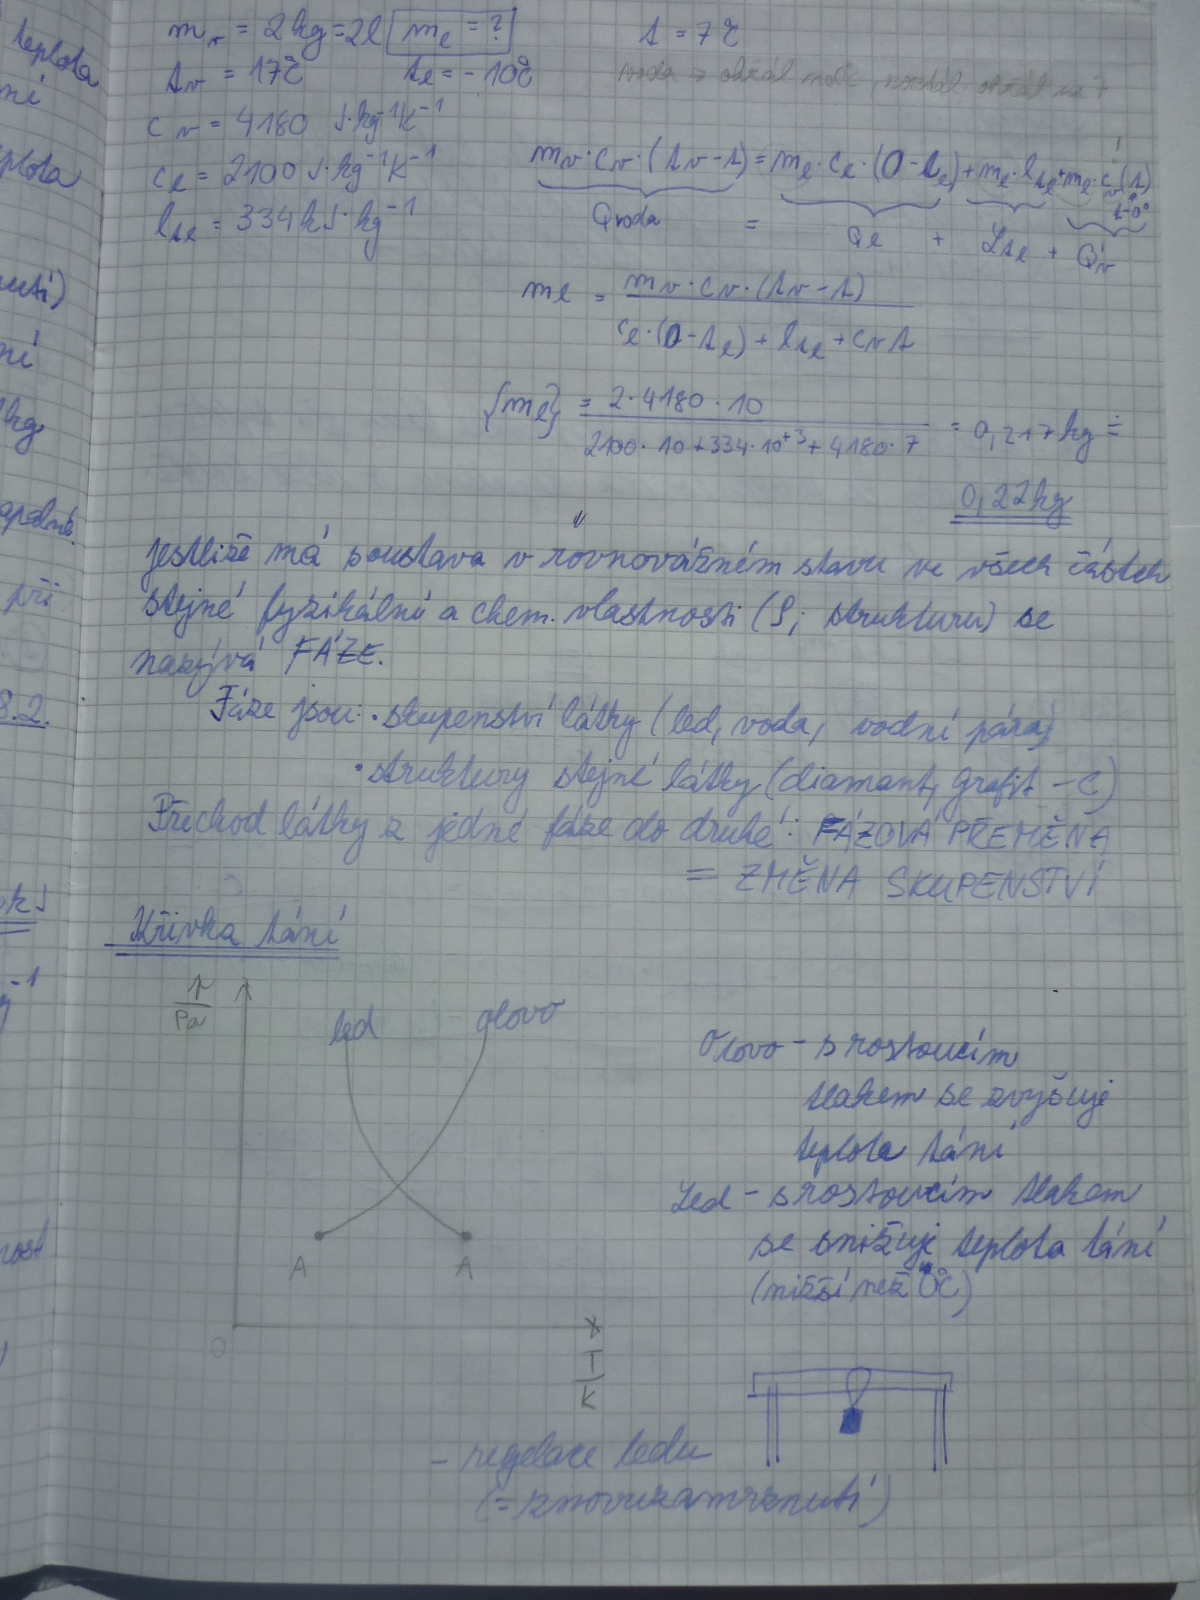 m_v = 2kg = 2l m_l = ? t = 7°C
t_v = 17°C t_l = -10°C
c_v = 4180 J·kg⁻¹K⁻¹
c_l = 2100 J·kg⁻¹K⁻¹
l_tl = 334kJ·kg⁻¹
m_v·c_v·(t_v-t) = m_l·c_l·(0-t_l) + m_l·l_tl + m_l·c_v(t)
t-0°
Qvoda = Ql + Ltl + Qv
m_l = m_v·c_v·(t_v-t)
c_l·(0-t_l) + l_tl + c_v t
{m_l} = 2·4180·10
2100·10+334·10⁺³+4180·7
= 0,217kg ≐
0,22kg
jestliže má soustava v rovnovážném stavu ve všech částech
stejné fyzikální a chem. vlastnosti (ρ; strukturu) se
nazývá FÁZE.
Fáze jsou: · skupenství látky (led, voda, vodní pára)
· struktury stejné látky (diamant, grafit - C)
Přechod látky z jedné fáze do druhé: FÁZOVÁ PŘEMĚNA
= ZMĚNA SKUPENSTVÍ
Křivka tání
p
Pa
led olovo
A A
0
T
K
Olovo - s rostoucím
tlakem se zvyšuje
teplota tání
Led - s rostoucím tlakem
se snižuje teplota tání
(nižší než 0°C)
- regelace ledu
(= znovuzamrznutí)
teplota
ní
teplota
nutí)
ní
kg
při
8.2.
kJ